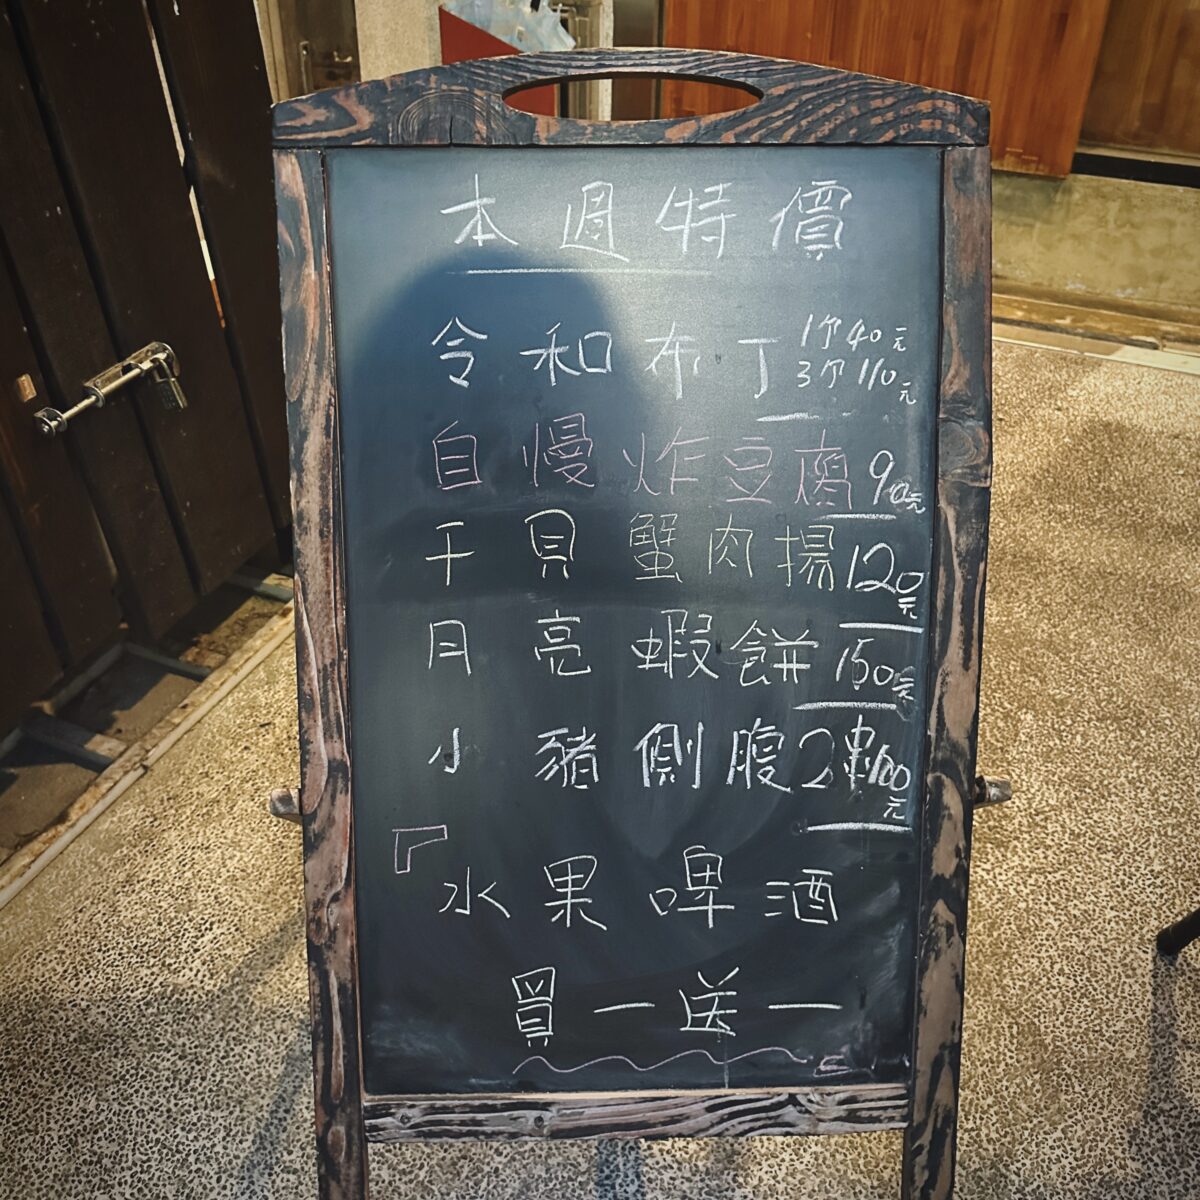 本週特價
令和布丁 1个40元
3个110元
自慢炸豆腐 90元
干貝蟹肉揚 120元
月亮蝦餅 150元
小豬側腹 2串100元
「水果啤酒
買一送一